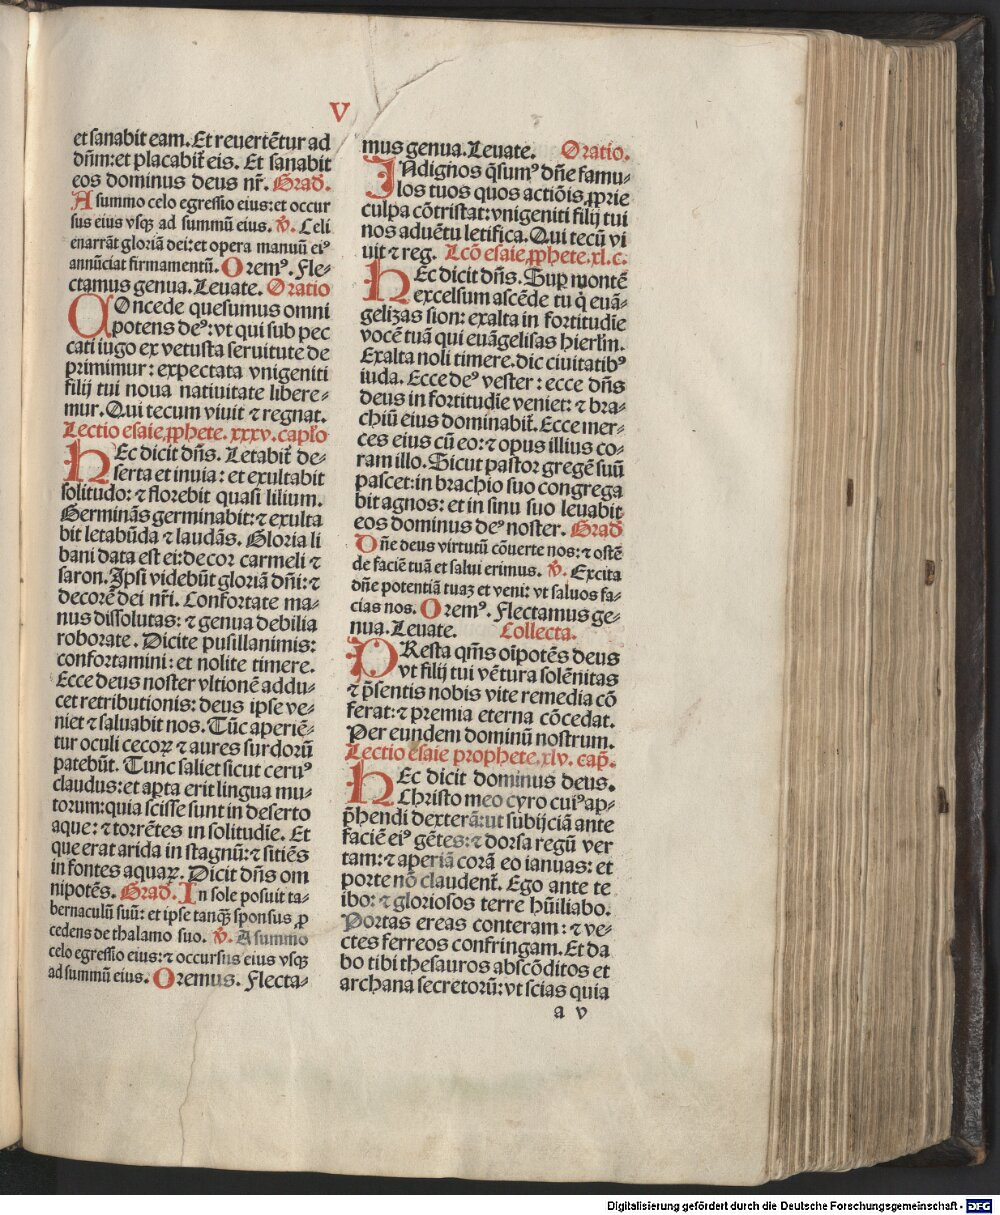 V
et sanabit eam. Et reuertẽtur ad
dñm: et placabit̃ eis. Et sanabit
eos dominus deus nr̃. Grad̃.
A summo celo egressio eius: et occur
sus eius vsqꝫ ad summũ eius. ℣. Celi
enarrãt gloriã dei: et opera manuũ eiꝰ
annũciat firmamentũ. Oremꝰ. Fle-
ctamus genua. Leuate. Oratio
COncede quesumus omni
potens deꝰ: vt qui sub pec
cati iugo ex vetusta seruitute de
primimur: expectata vnigeniti
filij tui noua natiuitate libere-
mur. Qui tecum viuit ⁊ regnat.
Lectio esaie ꝓphete. xxxv. capło
HEc dicit dñs. Letabit̃ de-
serta et inuia: et exultabit
solitudo: ⁊ florebit quasi lilium.
Germinãs germinabit: ⁊ exulta
bit letabũda ⁊ laudãs. Gloria li
bani data est ei: decor carmeli ⁊
saron. Ipsi videbũt gloriã dñi: ⁊
decorẽ dei nr̃i. Confortate ma-
nus dissolutas: ⁊ genua debilia
roborate. Dicite pusillanimis:
confortamini: et nolite timere.
Ecce deus noster vltionẽ addu-
cet retributionis: deus ipse ve-
niet ⁊ saluabit nos. Tũc aperiẽ-
tur oculi cecoꝝ ⁊ aures surdorũ
patebũt. Tunc saliet sicut ceruꝰ
claudus: et aꝑta erit lingua mu-
torum: quia scisse sunt in deserto
aque: ⁊ torrẽtes in solitudĩe. Et
que erat arida in stagnũ: ⁊ sitiẽs
in fontes aquaꝝ. Dicit dñs om
nipotẽs. Grad̃. In sole posuit ta-
bernaculũ suũ: et ipse tanqꝫ̃ sponsus ꝓ
cedens de thalamo suo. ℣. A summo
celo egressio eius: ⁊ occursus eius vsqꝫ
ad summũ eius. Oremus. Flecta-
mus genua. Leuate. Oratio.
INdignos q̃sumꝰ dñe famu-
los tuos quos actiõis ꝓprie
culpa cõtristat: vnigeniti filij tui
nos aduẽtu letifica. Qui tecũ vi
uit ⁊ reg. Lcõ esaie ꝓphete. xl. c.
HEc dicit dñs. Suꝑ montẽ
excelsum ascẽde tu q̃ euã-
gelizas sion: exalta in fortitudĩe
vocẽ tuã qui euãgelisas hierłm.
Exalta noli timere. dic ciuitatibꝰ
iuda. Ecce deꝰ vester: ecce dñs
deus in fortitudĩe veniet: ⁊ bra-
chiũ eius dominabit̃. Ecce mer-
ces eius cũ eo: ⁊ opus illius co-
ram illo. Sicut pastor gregẽ suũ
pascet: in brachio suo congrega
bit agnos: et in sinu suo leuabit
eos dominus deꝰ noster. Grad̃
Dñe deus virtutũ cõuerte nos: ⁊ ostẽ
de faciẽ tuã et salui erimus. ℣. Excita
dñe potentiã tuaꝫ et veni: vt saluos fa-
cias nos. Oremꝰ. Flectamus ge-
nua. Leuate. Collecta.
PResta qm̃s oĩpotẽs deus
vt filij tui vẽtura solẽnitas
⁊ p̃sentis nobis vite remedia cõ
ferat: ⁊ premia eterna cõcedat.
Per eundem dominũ nostrum.
Lectio esaie prophete. xlv. cap̃.
HEc dicit dominus deus.
Christo meo cyro cuiꝰ ap-
p̃hendi dexterã: ut subijciã ante
faciẽ eiꝰ gẽtes: ⁊ dorsa regũ ver
tam: ⁊ aperiã corã eo ianuas: et
porte nõ claudent̃. Ego ante te
ibo: ⁊ gloriosos terre hũiliabo.
Portas ereas conteram: ⁊ ve-
ctes ferreos confringam. Et da
bo tibi thesauros abscõditos et
archana secretorũ: vt scias quia
a v
Digitalisierung gefördert durch die Deutsche Forschungsgemeinschaft - DFG